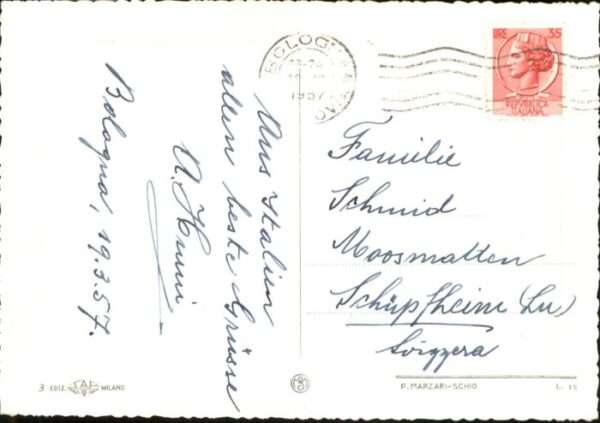 Bologna, 19.3.57.
Aus Italien
allen beste Grüsse
BOLOGNA
1957
LIRE 35
REPUBBLICA
ITALIANA
Familie
Schmid
Moosmatten
Schüpfheim (Lu)
Svizzera
3 EDIZ. SAF MILANO
P. MARZARI-SCHIO
L. 15